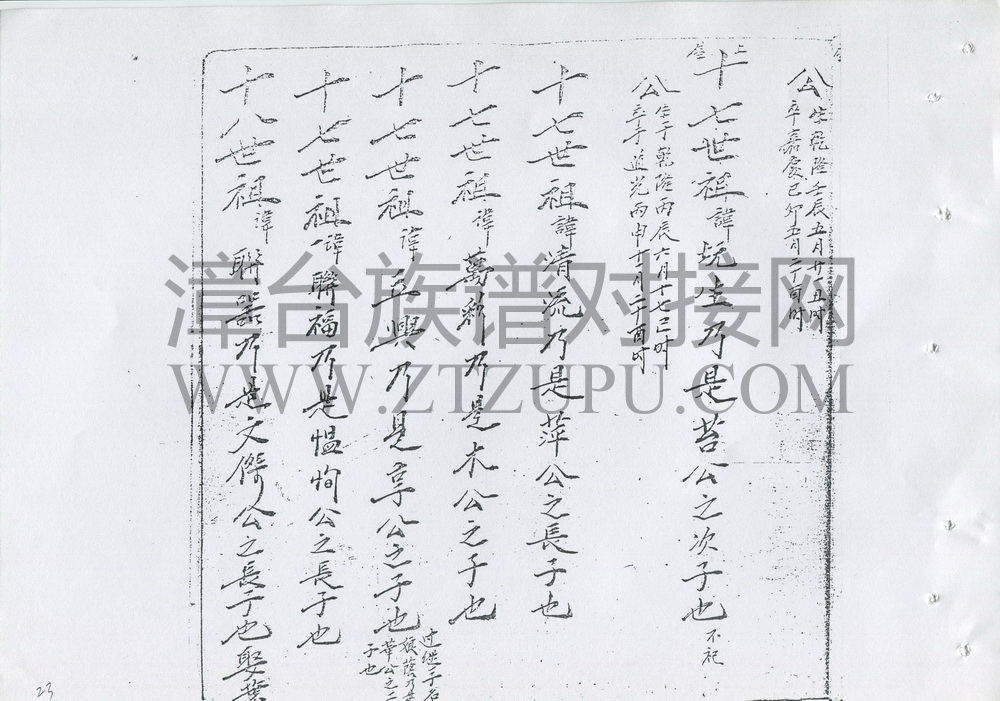 公
生乾隆壬辰五月廿一丑时
卒嘉慶己卯五月二丁酉时
十七世祖諱 生乃是苔公之次子也 不祀
公
生于乾隆丙辰六月十七巳时
卒于道光丙申十二月二十酉时
十七世祖諱清流乃是萍公之長子也
十七世祖諱萬彩乃是木公之子也
十七世祖諱五興乃是享公之子也
过继子名
振蔭乃是
華公之二
子也
十七世祖諱聯福乃是愠恂公之長子也
十八世祖諱聯器乃是文傑公之長子也娶葉
漳台族谱对接网
WWW.ZTZUPU.COM
23